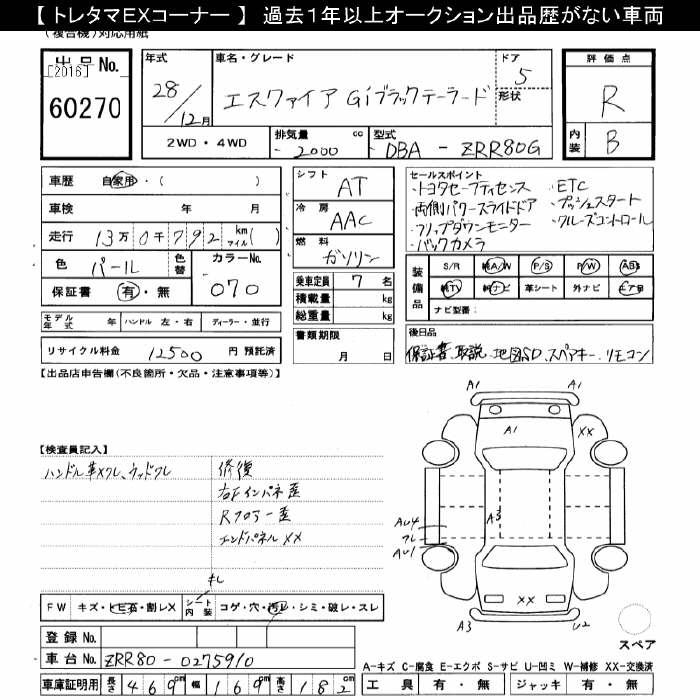 【 トレタマEXコーナー 】 過去1年以上オークション出品歴がない車両
(複合機)対応用紙
出品No.
[2016]
60270
年式
28/12月
車名・グレード
エスクァイア Giブラックテーラード
ドア
5
形状
評価点
R
内装
B
2WD・4WD
排気量
2000
cc
型式
DBA - ZRR80G
車歴 自家用・( )
車検 年 月
走行 13万0千792 km マイル( )
色 パール
色替
カラーNo.
070
保証書 有・無
シフト
AT
冷房
AAC
燃料
ガソリン
乗車定員 7 名
積載量 kg
総重量 kg
セールスポイント
・トヨタセーフティセンス ・ETC
・両側パワースライドドア ・プッシュスタート
・フリップダウンモニター ・クルーズコントロール
・バックカメラ
装備品
S/R 純A/W P/S P/W ABS
純TV 純ナビ 革シート 外ナビ エア B
ナビ型番:
モデル年式 年 ハンドル 左・右 ディーラー・並行
リサイクル料金 12500 円 預託済
書類期限
月 日
後日品
保証書、取説、地図SD、スペアキー、リモコン
【出品店申告欄(不良箇所・欠品・注意事項等)】
【検査員記入】
ハンドル革スレ、ウッドスレ
修復
右Fインパネ歪
Rフロアー歪
エンドパネルXX
キレ
FW キズ・トビ石・割レX
シート内装 コゲ・穴・汚レ・シミ・破レ・スレ
登録No.
車台No. ZRR80-0275910
車庫証明用 長さ 469cm 幅 169cm 高さ 182cm
A1
A1
A1
XX
A3
AU4
スレ
AU1
XX
A3
U2
スペア
A-キズ C-腐食 E-エクボ S-サビ U-凹ミ W-補修 XX-交換済
工具 有・無 ジャッキ 有・無